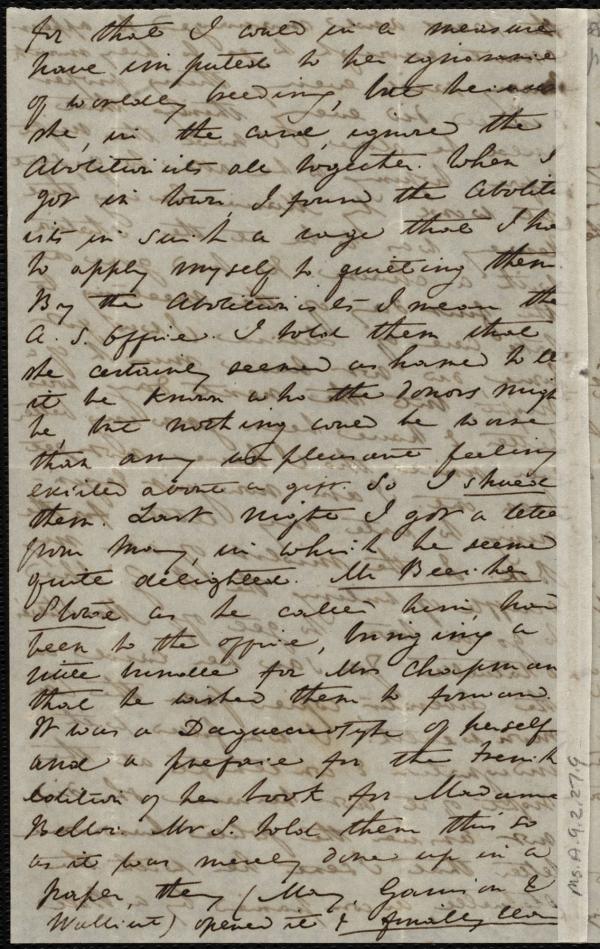 for that I could in a measure
have imputed to her ignorance
of worldly breeding, but because
she, in the card, ignored the
Abolitionists all together. When I
got in town, I found the Aboliti
ists in such a rage that I ha
to apply myself to quieting them.
By the Abolitionists I mean the
A. S. Office. I told them that
she certainly seemed ashamed to le
it be known who the donors migh
be, but nothing could be worse
than any unpleasant feeling
excited about a gift. So I
them. Last night I got a lette
from May, in which he seemed
quite delighted. Mr Beecher
Stowe as he called him, had
been to the office, bringing a
little bundle for Mrs Chapman
that he wished them to forward.
It was a Daguereotype of herself
and a preface for the French
Edition of her book for Madame
Belloc. Mr S. told them this so
as it was merely done up in a
paper, they (May, Garrison &
Wallcut) opened it & finally
Ms.A.9.2.27.9